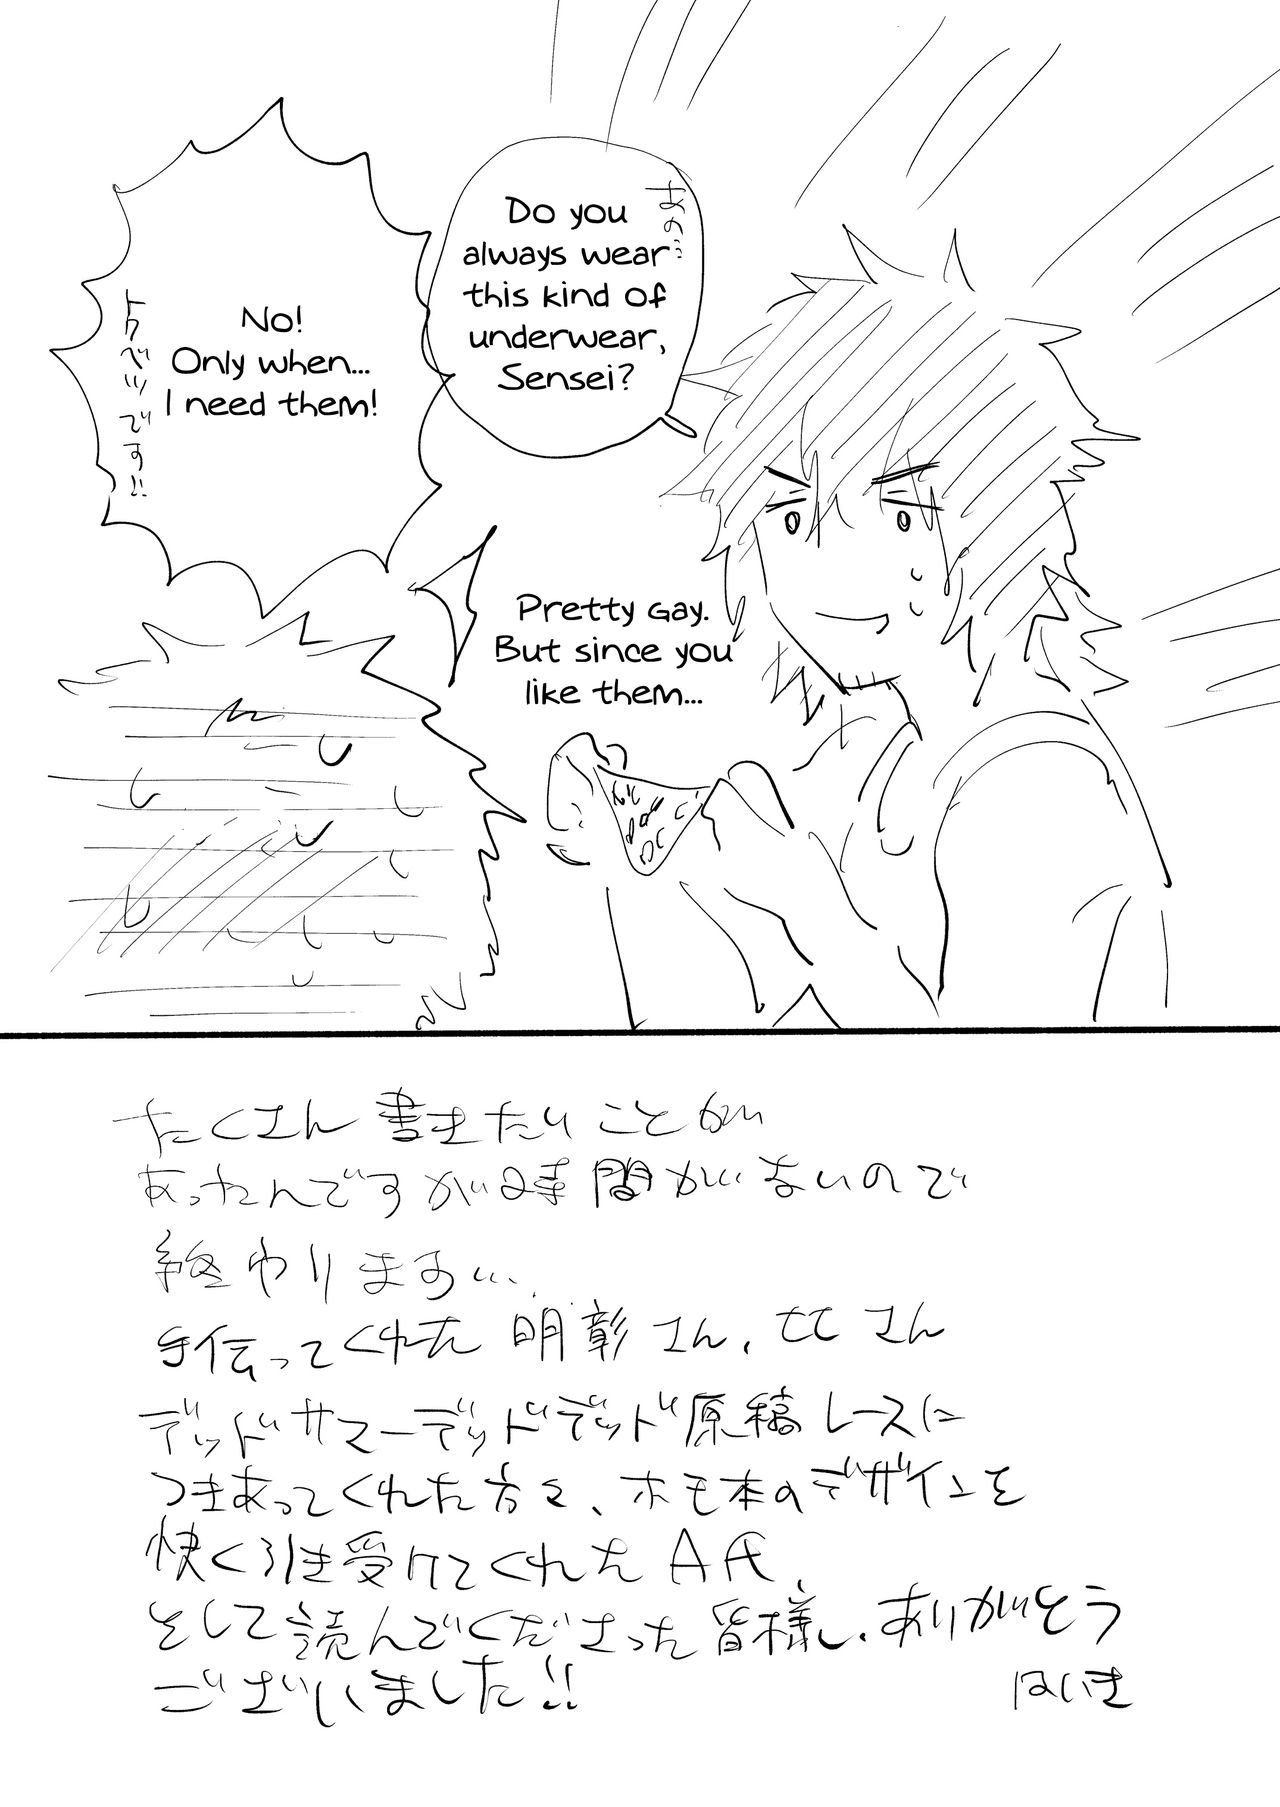 あの…
Do you
always wear
this kind of
underwear,
Sensei?
No!
Only when...
I need them!
トクベツです!!
Pretty gay.
But since you
like them...
たくさん書きたいことが
あったんですが時間がないので
終わります…
手伝ってくれた明彰さん、ヒヒさん
デッドサマーデッドデッド原稿レースに
つきあってくれた方々、ホモ本のデザインを
快く引き受けてくれたA氏
そして読んでくださった皆様し、ありがとう
ございました!!
はいき